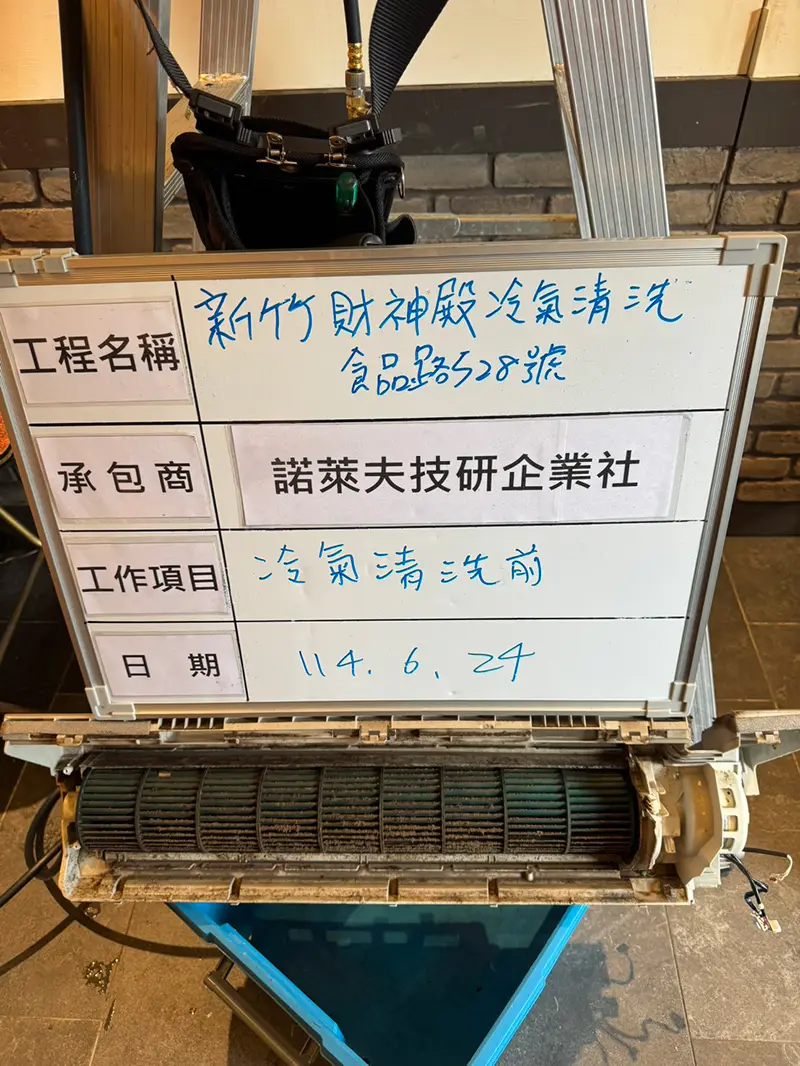 工程名稱 新竹財神殿冷氣清洗
食品路528號
承包商 諾萊夫技研企業社
工作項目 冷氣清洗前
日期 114.6.24